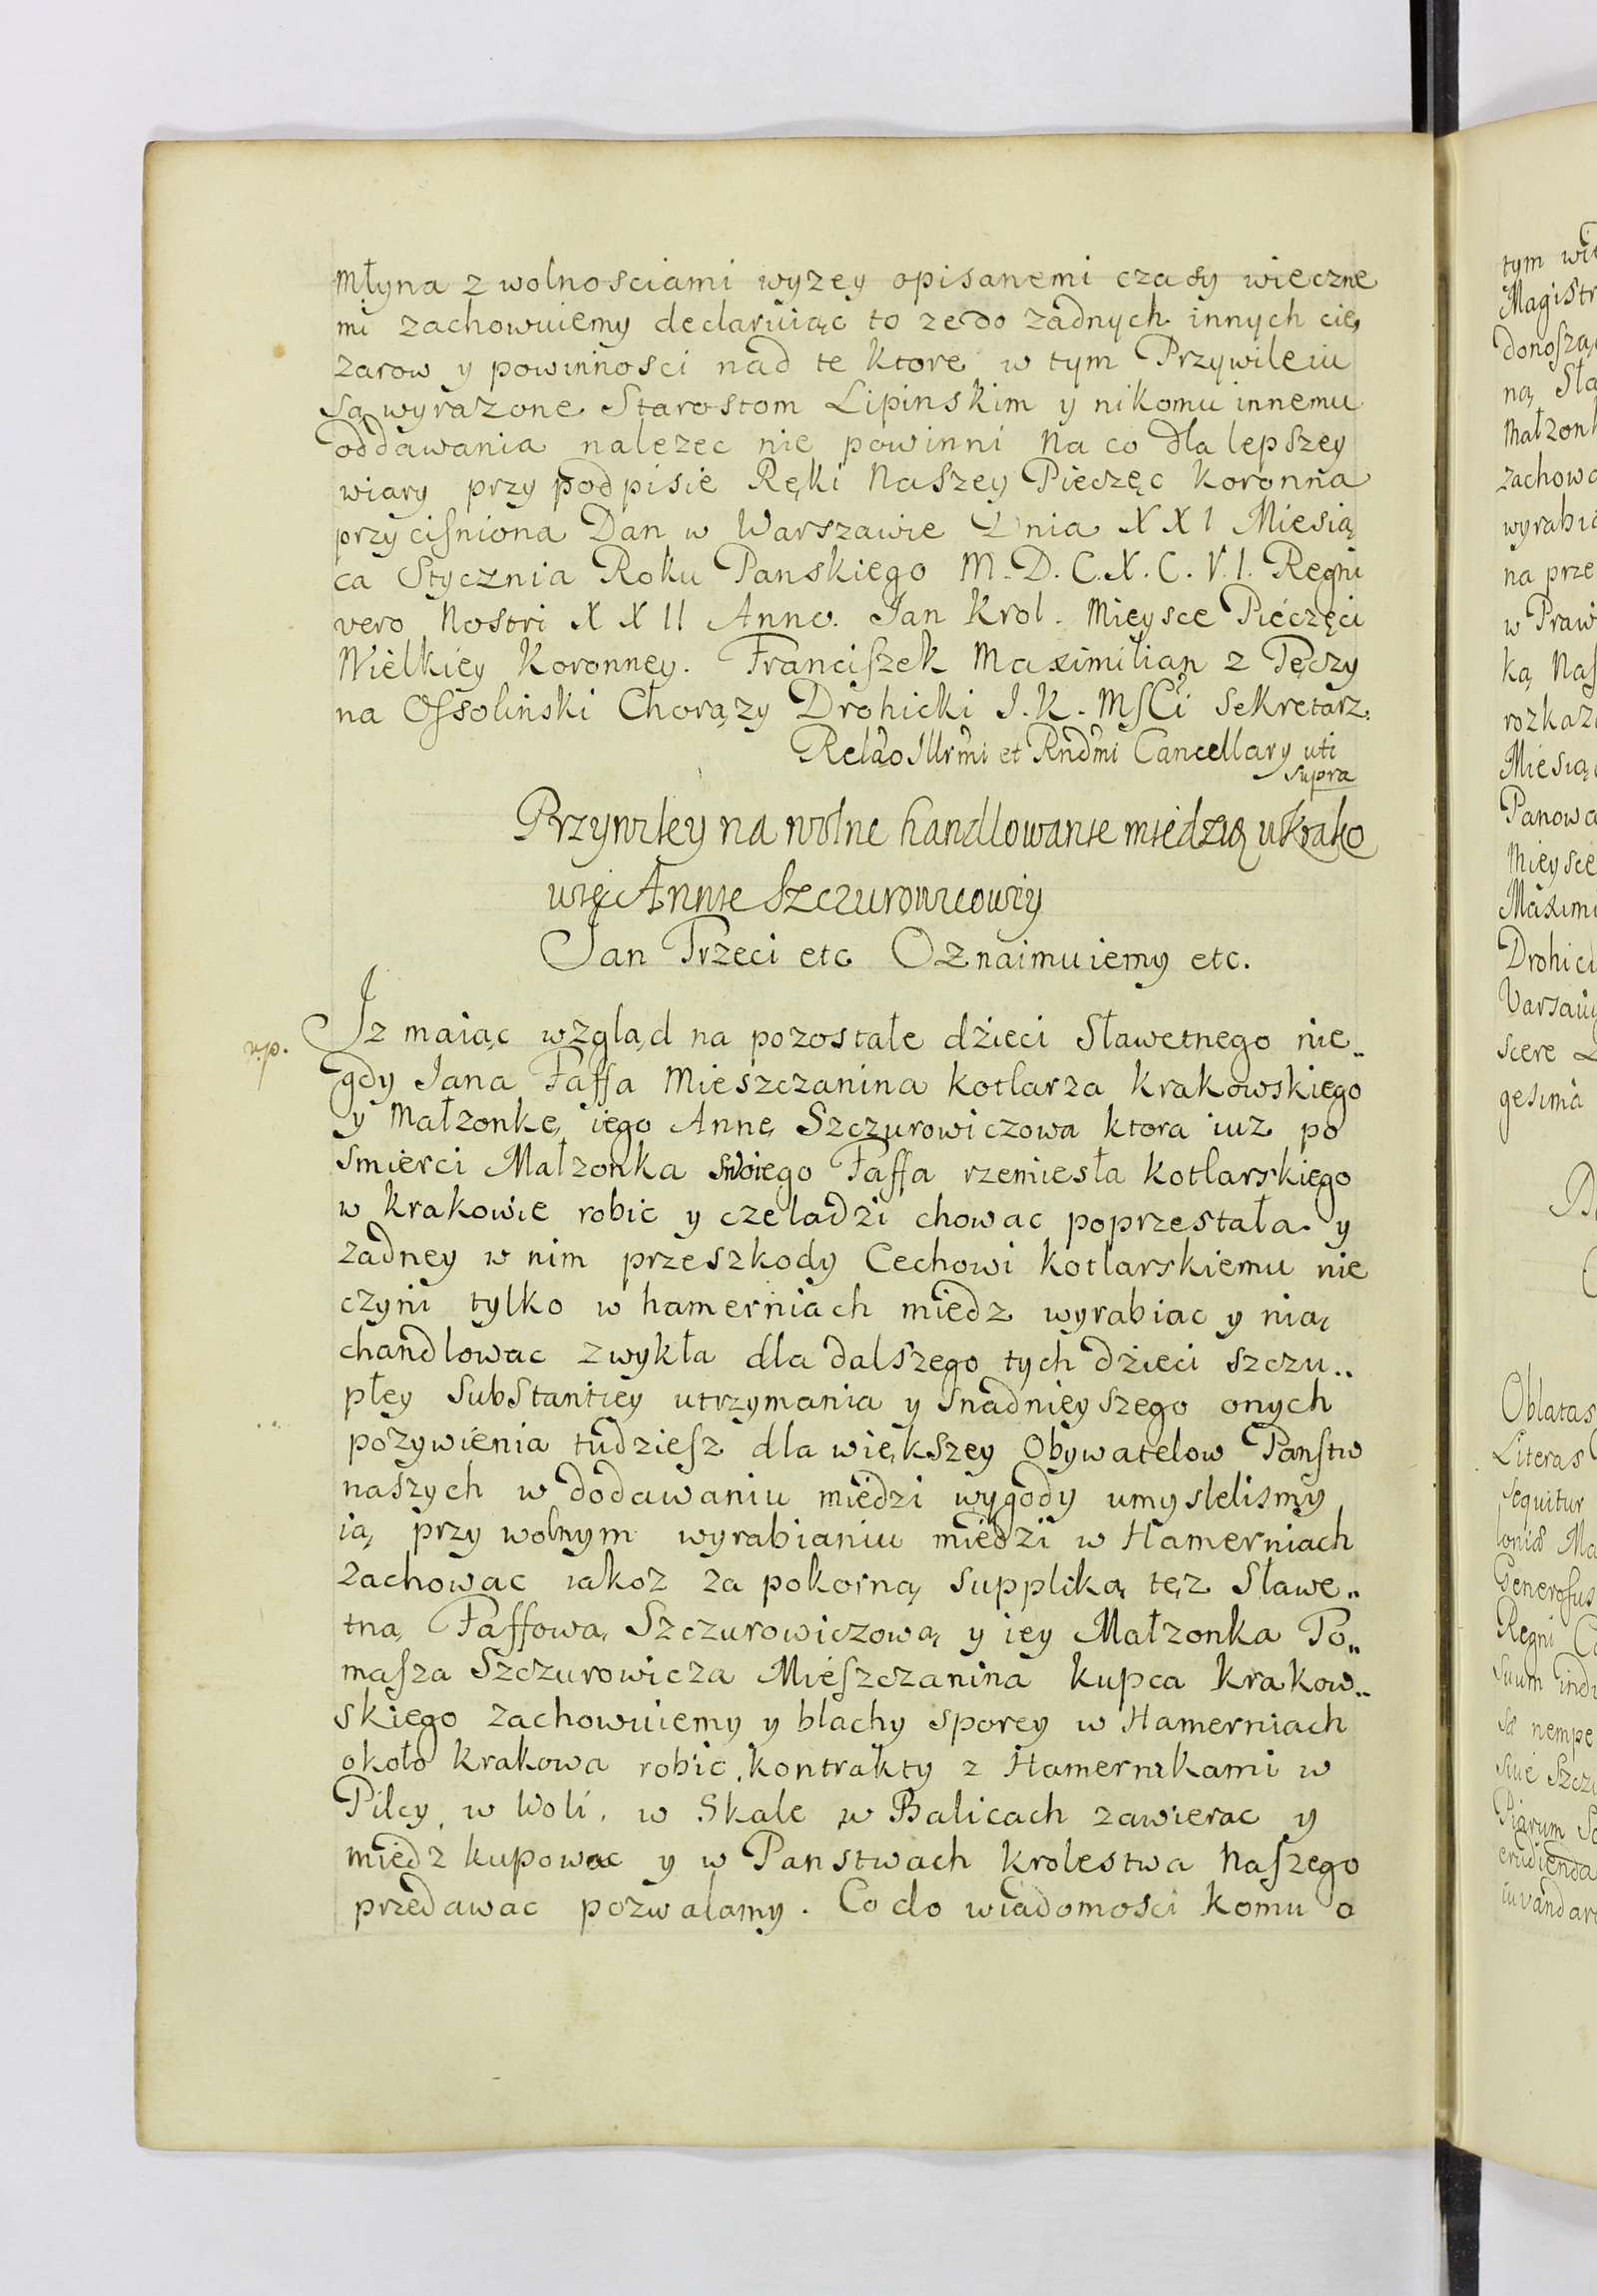 Młyna z wolnosciami wyzey opisanemi czasy wieczne
mi zachowuiemy declaruiąc to ze do zadnych innych cię
zarow y powinnosci nad te ktore w tym Przywileiu
są wyrazone Starostom Lipinskim y nikomu innemu
oddawania nalezec nie powinni Na co dla lepszey
wiary przy podpisie Ręki Naszey Pieczęc Koronna
przycisniona Dan w Warszawie Dnia XXI Miesią
ca Stycznia Roku Panskiego M.D.C.X.C.V.I. Regni
vero Nostri XXII Anno. Jan Krol. Mieysce Pieczęci
Wielkiey Koronney. Franciszek Maximilian z Tęczy
na Ossolinski Chorązy Drohicki J.K.MSCi Sekretarz.
Relao Illrmi et Rndmi Cancellary uti
supra
Przywiley na wolne handlowanie miedzią w Krako
wię Annie Szczurowicowiy
Jan Trzeci etc Oznaimuiemy etc.
rp. Iz maiąc wzgląd na pozostałe dzieci Sławetnego nie
gdy Jana Faffa Mieszczanina kotlarza krakowskiego
y Małzonkę iego Annę Szczurowiczowa ktora iuz po
smierci Małzonka swoiego Faffa rzemiesła kotlarskiego
w krakowie robic y czeladzi chowac poprzestała y
zadney w nim przeszkody Cechowi kotlarskiemu nie
czyni tylko w hamerniach miedz wyrabiac y nią
chandlowac zwykła dla dalszego tych dzieci szczu..
płey substantiey utrzymania y snadnieyszego onych
pozywienia tudziesz dla większey Obywatelow Panstw
naszych w dodawaniu miedzi wygody umyslelismy
ią przy wolnym wyrabianiu miedzi w Hamerniach
zachowac iakoz za pokorną suppliką tęz Sławe..
tną Faffową Szczurowiczową y iey Małzonka To..
masza Szczurowicza Mieszczanina kupca krakow..
skiego zachowuiemy y blachy sporey w Hamerniach
około krakowa robic, kontrakty z Hamernikami w
Pilcy, w Woli, w Skale w Balicach zawierac y
miedz kupowac y w Panstwach krolestwa Naszego
przedawac pozwalamy. Co do wiadomosci komu o
tym
Magistr
donosza
na, Sła
Małzonk
zachowa
wyrabia
na prze
w Praw
ką Nas
rozkaz
Miesiąc
Panowa
Mieysce
Maximi
Drohic
scere
gesima
Oblatas
Literas
sequitur
Generosus
Regni
suum
sa nempe